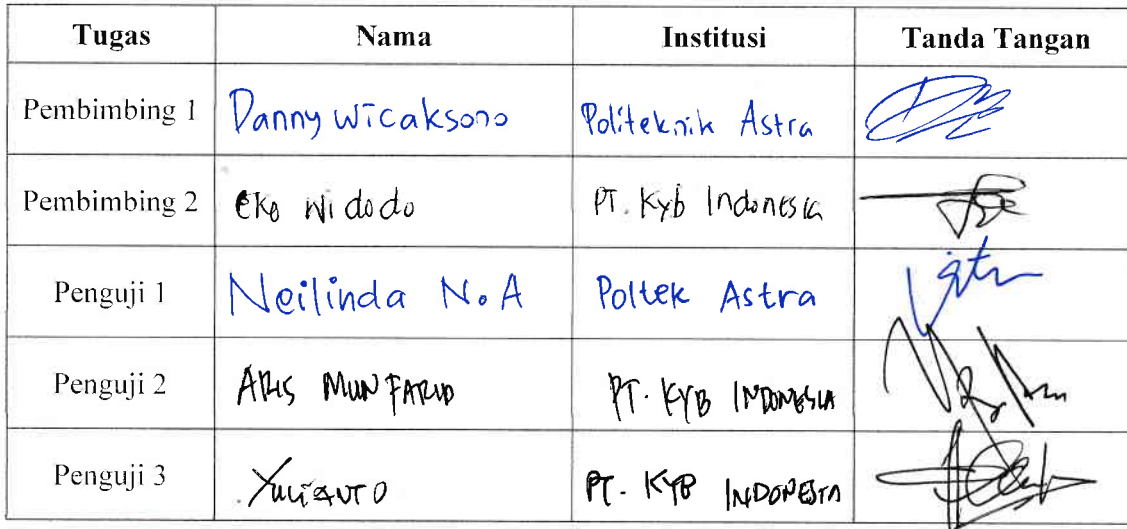 Tugas Nama Institusi Tanda Tangan
Pembimbing 1 Danny Wicaksono Politeknik Astra
Pembimbing 2 Eko Widodo PT. Kyb Indonesia
Penguji 1 Neilinda N.A Poltek Astra
Penguji 2 ARIS MUNFARID PT. KYB INDONESIA
Penguji 3 Yulianto PT. KYB INDONESIA